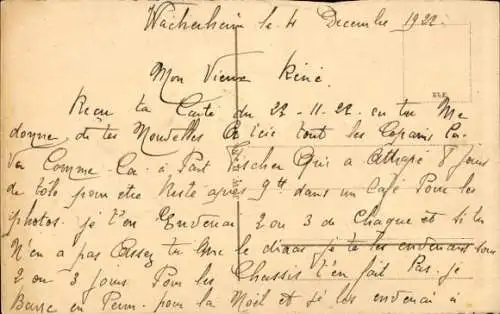 Wacherheim le 4 Decembre 1922.
Mon Vieux Réné.
Recu ta Carte du 22-11-22. ou tu Me
donne de tes Nouvelles a ici tout les Copains Ca
Va Comme Ca a Part Fischer Qui a Attrapé 8 Jours
de tôle pour etre Resté apres 9h dans un Café Pour les
photos. je t'en Enverai 2 ou 3 de Chaque et si tu
N'en a pas Assez tu Me le diras je te les enverai sous
2 ou 3 jours Pour les Chassis t'en fait Pas. je
Barre en Perm. pour la Noël et je les enverai à